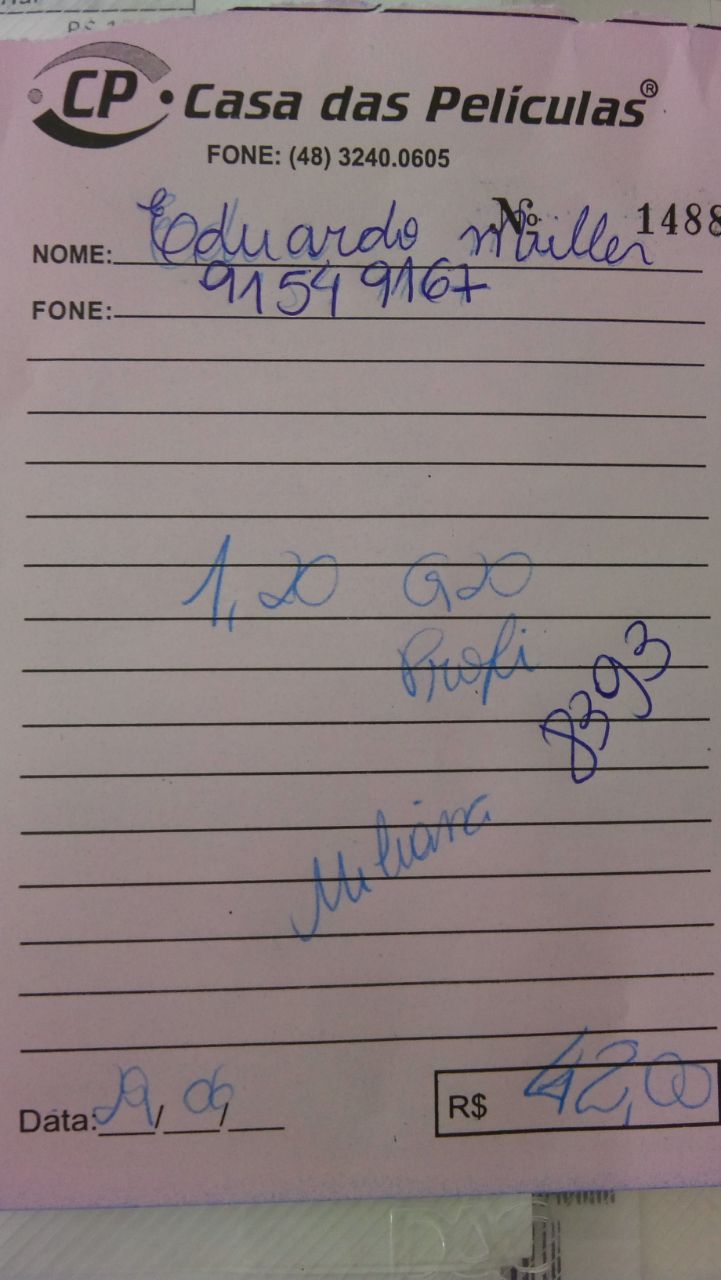 CP Casa das Películas®
FONE: (48) 3240.0605
Nº 1488
NOME: Eduardo Müller
FONE: 91549167
1,20 G20
Profi
8393
Data: 29/06/
R$ 42,00